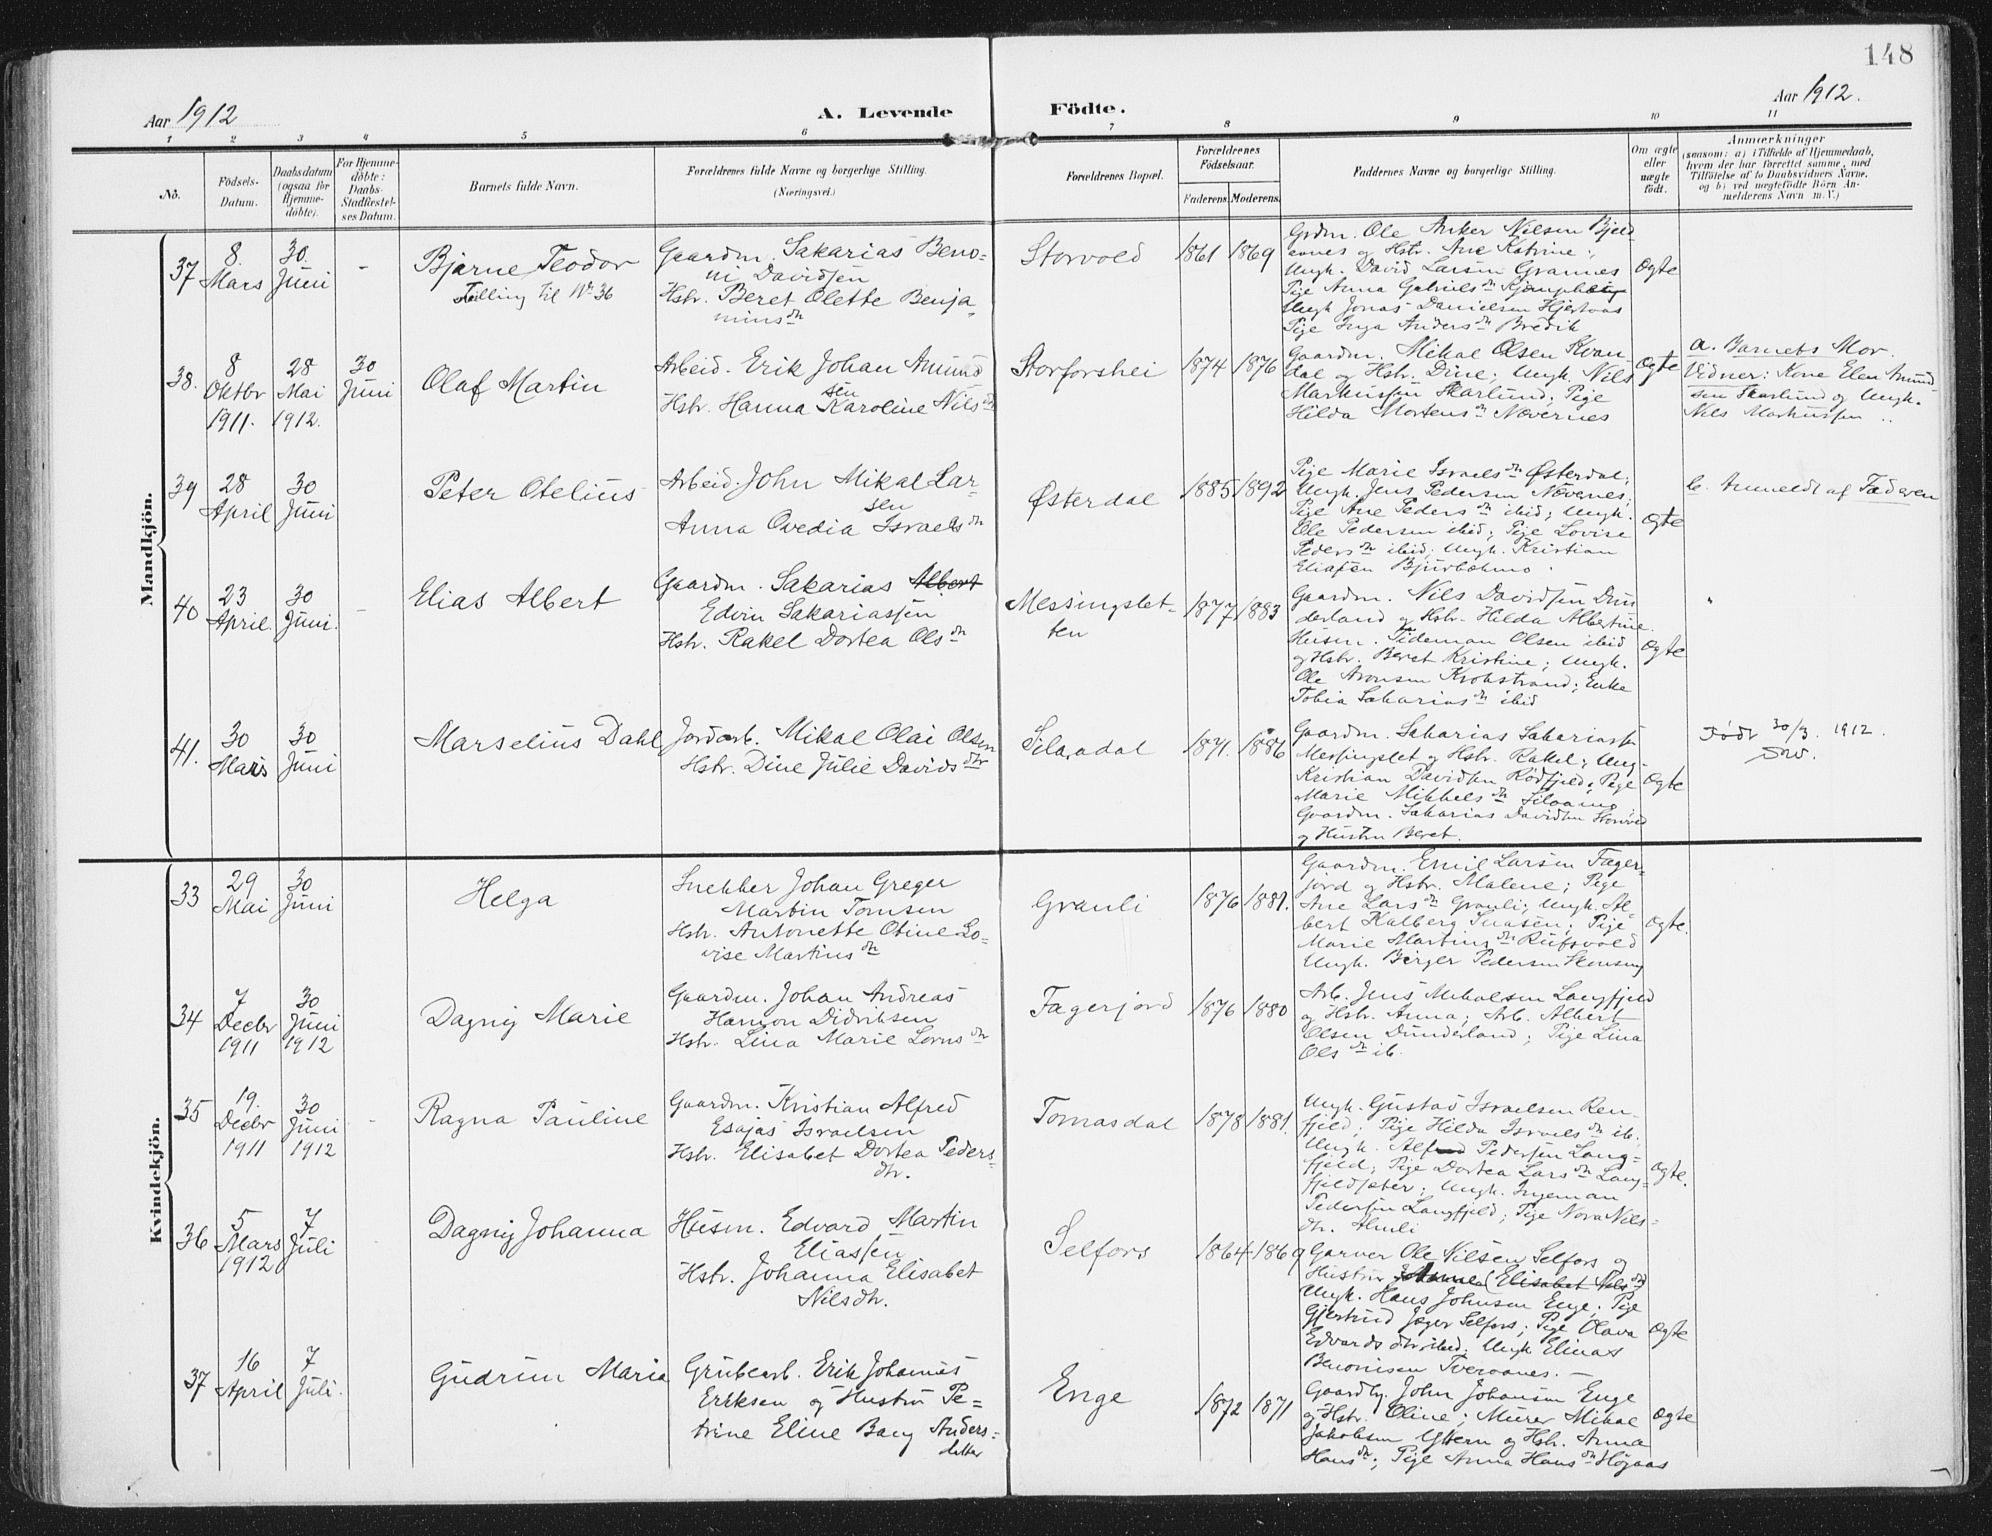 148
Aar 1912
A. Levende Födte.
Aar 1912.
1 2 3 4 5 6 7 8 9 10 11
No.
Födsels-
Datum.
Daabsdatum
(ogsaa for
Hjemme-
döbte).
For Hjemme-
döbte:
Daabs-
Stadfæstel-
ses Datum.
Barnets fulde Navn.
Forældrenes fulde Navne og borgerlige Stilling.
(Næringsvei.)
Forældrenes Bopæl.
Forældrenes
Födselsaar.
Faderens. Moderens.
Faddernes Navne og borgerlige Stilling.
Om ægte
eller
uægte
født.
Anmærkninger
(saasom: a) i Tilfælde af Hjemmedaab,
hvem der har forrettet samme, med
Tilföielse af to Daabsvidners Navne,
og b) ved uægtefödte Börn An-
melderens Navn m. V.)
Mandkjön.
37
8.
Mars
30.
Juni
-
Bjarne Teodor
Tvilling til Nr 36
Gaardm. Sakarias Beno-
ni Davidsen
Hstr. Beret Olette Benja-
mins dtr
Storvold
1861
1869
Grdm. Ole Anker Nilsen Bjeld-
aanes og Hstr. Ane Katrine;
Ungk. David Larsen Grannes
Pige Anna Gabriels dtr
Ungk Jonas Danielsen Hjertaas
Pige Inga Anders dtr Bredik
Ægte
38.
8
Oktbr
1911.
28
Mai
1912.
30
Juni
Olaf Martin
Arbeid. Erik Johan Amund
sen
Hstr. Hanna Karoline Nils dtr
Storforshei
1874
1876
Gaardm. Mikal Olsen Kvan-
dal og Hstr. Dine; Ungk. Nils
Markussen Skarlund; Pige
Hilda Mortens dtr Nævernes
Ægte
a. Barnets Mor.
Vidner: Kone Elen Amund-
sen Skarlund og Ungk.
Nils Markussen
39
28
April
30
Juni
Peter Otelius
Arbeid. John Mikal Lar-
sen
Anna Ovedia Israels dtr
Østerdal
1885
1892
Pige Marie Israels dtr Østerdal;
Ungk. Jens Pedersen Nævernes;
Pige Ane Peders dtr ibid; Ungk.
Ole Pedersen ibid; Pige Lovise
Peders dtr ibid; Ungk. Kristian
Eliasen
Ægte
b. Anmeldt af Faderen
40
23
April.
30
Juni.
-
Elias Albert
Gaardm. Sakarias Albert
Edvin Sakariassen
Hstr. Rakel Dortea Ols dtr
Messingslet-
ten
1877
1883
Gaardm. Nils Davidsen Dun
derland og Hstr. Hilda Albertine.
Husm. Tideman Olsen ibid
og Hstr. Beret Kristine; Ungk.
Ole Aronsen Krokstrand; Enke
Tobia Sakarias dtr ibid
Ægte
41.
30
Mars
30
Juni
Marselius Dahl
Jordarb. Mikal Olai Olsen
Hstr. Dine Julie Davids dtr
Silaadal
1871.
1886
Gaardm. Sakarias Sakariassen
Messingslet og Hstr. Rakel; Ung-
Kristian Davidsen Rødfjeld; Pige
Marie Mikkels dtr
Gaardm. Sakarias Davidsen Storvold
og Hustru Beret.
Ægte
Født 30/3 1912.
Kvindekjön.
33
29
Mai
30
Juni
Helga
Snekker Johan Greger
Martin Tomsen
Hstr. Antonette Otine Lo-
vise Martins dtr
Granli
1876
1881.
Gaardm. Emil Larsen Fager-
jord og Hstr. Malene; Pige
Ane Lars dtr Granli; Ungk. Al-
bert Kalberg Snasen; Pige
Marie Martins dtr Rufsvold
Ungk. Birger Pedersen
Ægte.
34
7
Decbr
1911
30
Juni
1912
Dagny Marie
Gaardm. Johan Andreas
Hanjon Didriksen
Hstr. Lina Marie Lorns dtr
Fagerjord
1876
1880
Arb. Jens Mikalsen Langfjeld
og Hstr. Anna; Arb. Albert
Olsen Dunderland; Pige Lina
Ols dtr ib.
35
19.
Decbr
1911
30
Juni
1912
-
Ragna Pauline
Gaardm. Kristian Alfred
Esajas Israelsen
Hstr. Elisabet Dortea Peders-
dtr.
Tomasdal
1878
1881.
Ungk. Gustav Israelsen Ren-
fjeld; Pige Hilda Israels dtr ib.
Ungk. Alfred Pedersen Lang-
fjeld; Pige Dortea Lars dtr Lang-
fjeldsæter; Ungk. Ingeman
Pedersen Langfjeld; Pige Nora Nils-
dtr.
Ægte.
36
5
Mars
1912
7
Juli
Dagny Johanna
Husm. Edvard Martin
Eliassen
Hstr. Johanna Elisabet
Nilsdtr.
Selfors
1864
1869
Garver Ole Nilsen Selfors og
Hustru (Elisabet Nils dtr)
Ungk. Hans Johnsen Enge; Pige
Gjertrud Jæger Selfors; Pige Olava
Edvards dtr ibid. Ungk Elinas
Benonisen Tveraanes. -
Ægte
37
16
April
7
Juli.
Gudrun Maria
Grubearb. Erik Johannes
Eriksen og Hustru Pe-
trine Eline Bang Anders-
datter
Enge
1872
1871
Gaardbr. John Johansen Enge
og Hstr. Oline; Murer Mikal
Jakobsen Ytteren og Hstr. Anna
Hans dtr; Pige Anna Hans dtr Høgaas
Ægte